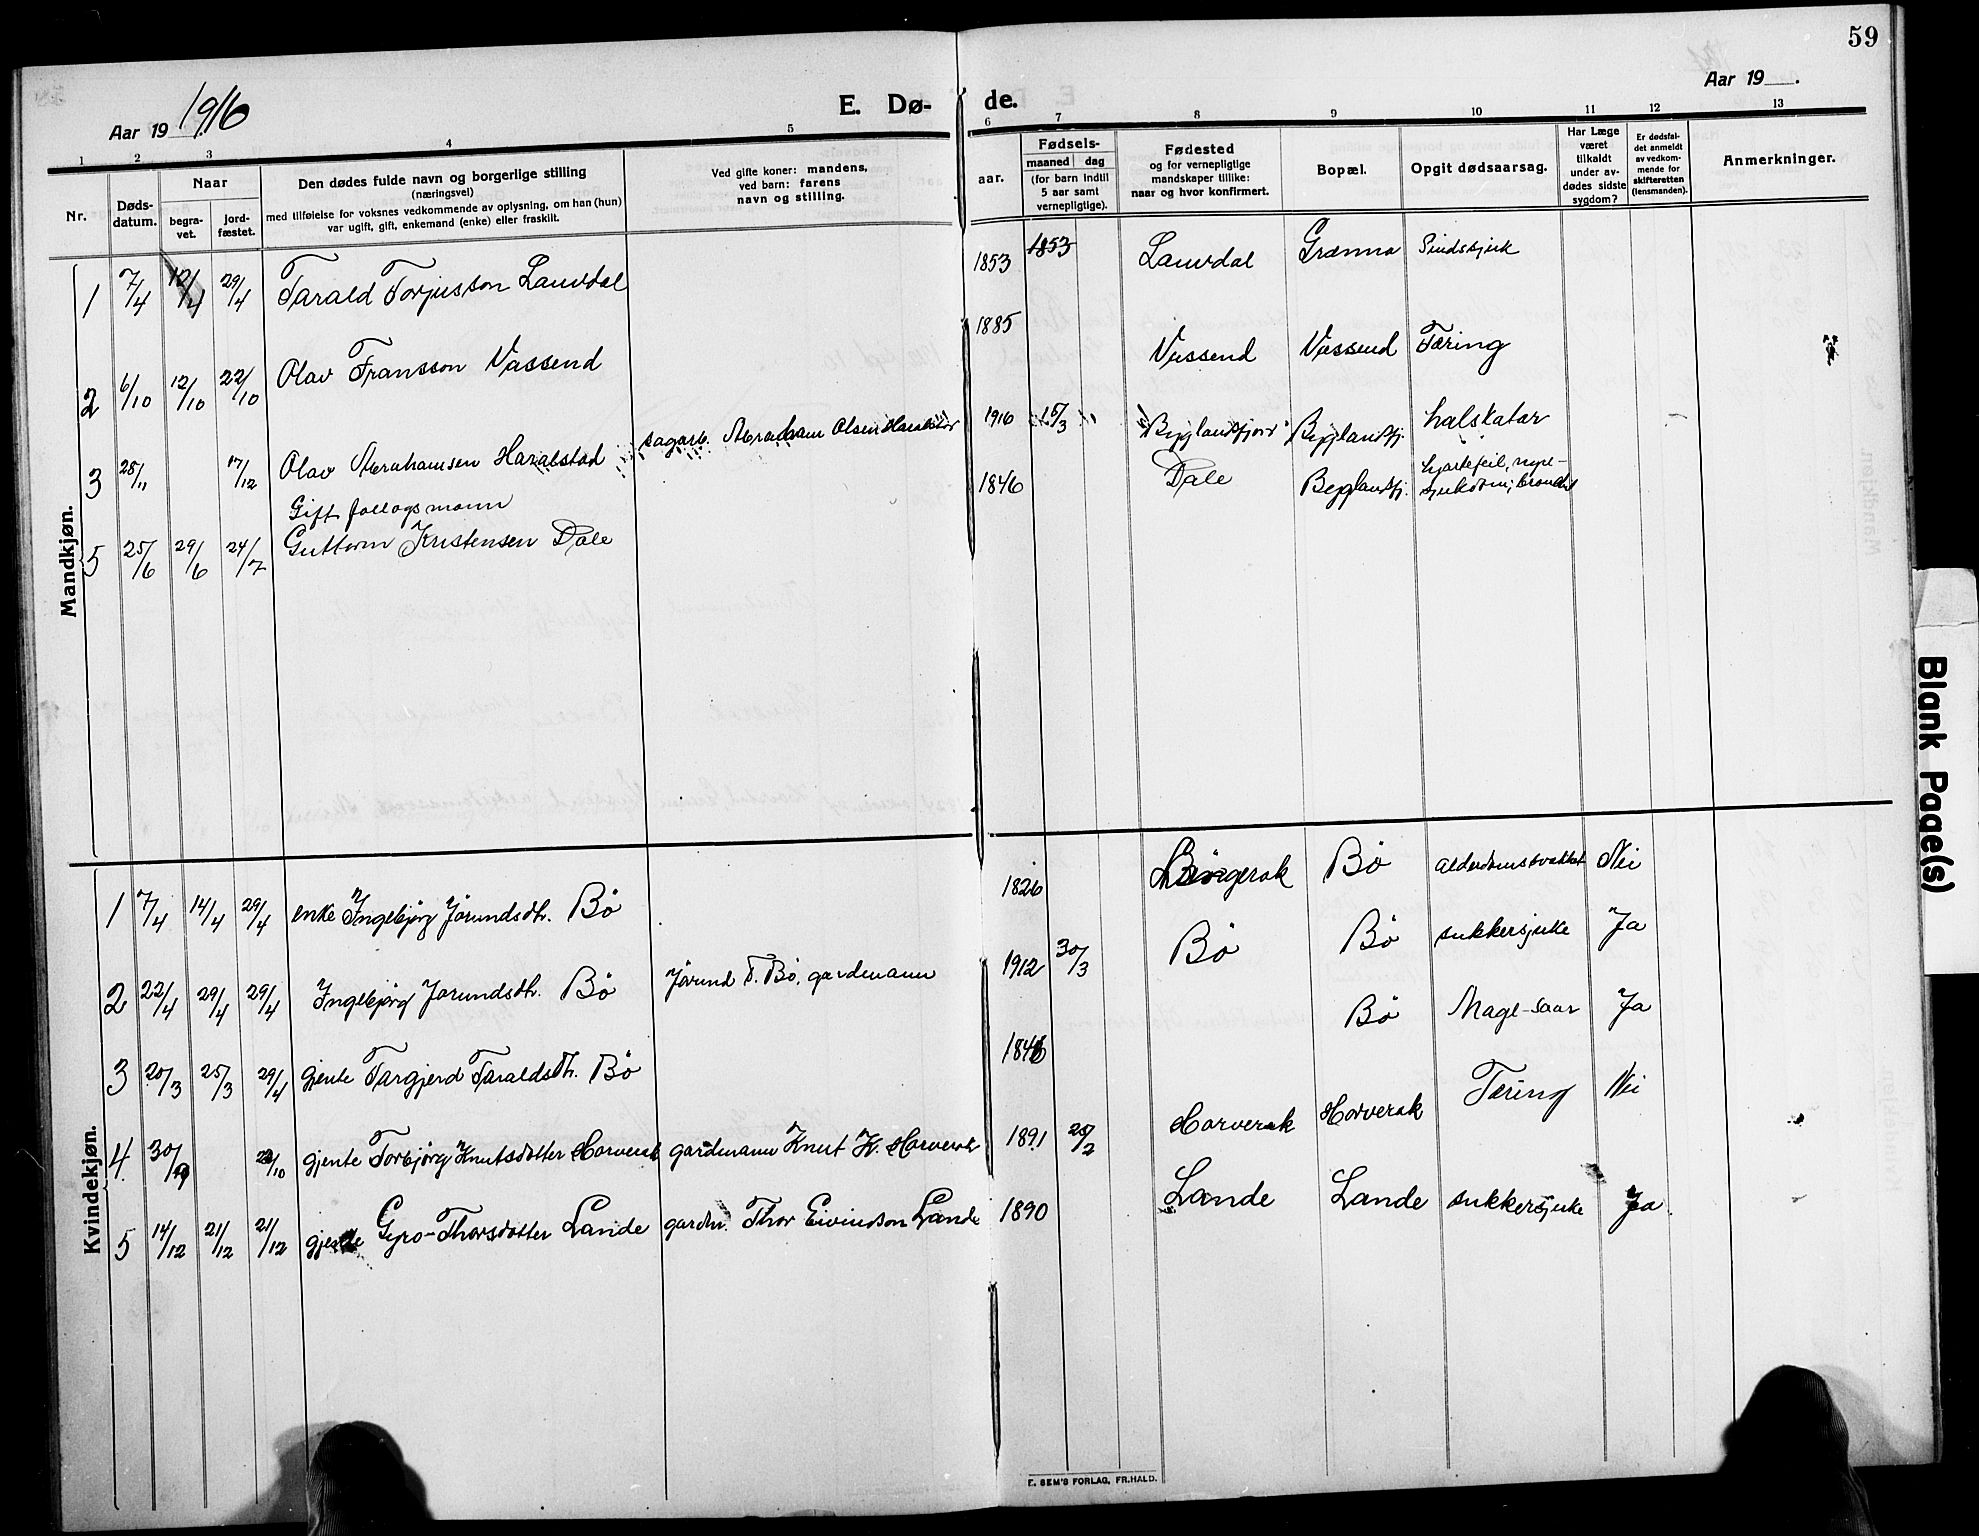 59
Aar 19 1916
E. Dø-
de.
Aar 19 .
1 2 3 4 5 6 7 8 9 10 11 12 13
Nr.
Døds-
datum.
Naar
begra-
vet.
jord-
fæstet.
Den dødes fulde navn og borgerlige stilling
(næringsvei)
med tilføielse for voksnes vedkommende av oplysning, om han (hun)
var ugift, gift, enkemand (enke) eller fraskilt.
Ved gifte koner: mandens,
ved barn: farens
navn og stilling.
Fødsels-
aar.
maaned dag
(for barn indtil
5 aar samt
vernepligtige).
Fødested
og for vernepligtige
mandskaper tillike:
naar og hvor konfirmert.
Bopæl.
Opgit dødsaarsag.
Har Læge
været
tilkaldt
under av-
dødes sidste
sygdom?
Er dødsfal-
det anmeldt
av vedkom-
mende for
skifteretten
(lensmanden).
Anmerkninger.
Mandkjøn.
1 7/4 12/4 29/4 Tarald Torjusson Lauvdal 1853 1853 Lauvdal Grænna Sindssjuk
2 6/10 12/10 22/10 Olav Fransson Vassend 1885 Vassend Vassend Tæring
3 28/11 17/12 Olav Abrahamsen Haralstad sagarb. Abraham Olsen Haralstad 1916 15/3 Byglandsfjord Byglandsfj. halskatar
Gift follogsmann
5 25/6 29/6 24/7 Guttorm Kristensen Dale 1846 Dale Byglandsfj. hjartefeil, nyre-
sjukdom,
Kvindekjøn.
1 7/4 14/4 29/4 enke Ingebjørg Jørundsdtr. Bø 1826 Bø Alderdomssvakhet Nei
2 22/4 29/4 29/4 Ingebjørg Jørundsdtr. Bø Jørund T. Bø, gardmann 1912 30/3 Bø Bø sukkersjuke Ja
3 20/3 25/3 29/4 gjente Targjerd Taraldsdtr. Bø 1846 Bø Mage-saar Ja
4 30/9 22/10 gjente Torbjørg Knutsdotter Horverak gardmann Knut K. Horverak 1891 25/2 Horverak Horverak Tæring Nei
5 14/12 21/12 21/12 gjente Gyro Thorsdotter Lande gardm. Thor Eivindson Lande 1890 Lande Lande sukkersjuke Ja.
E. SEM'S FORLAG, FR.HALD.
Blank Page(s)